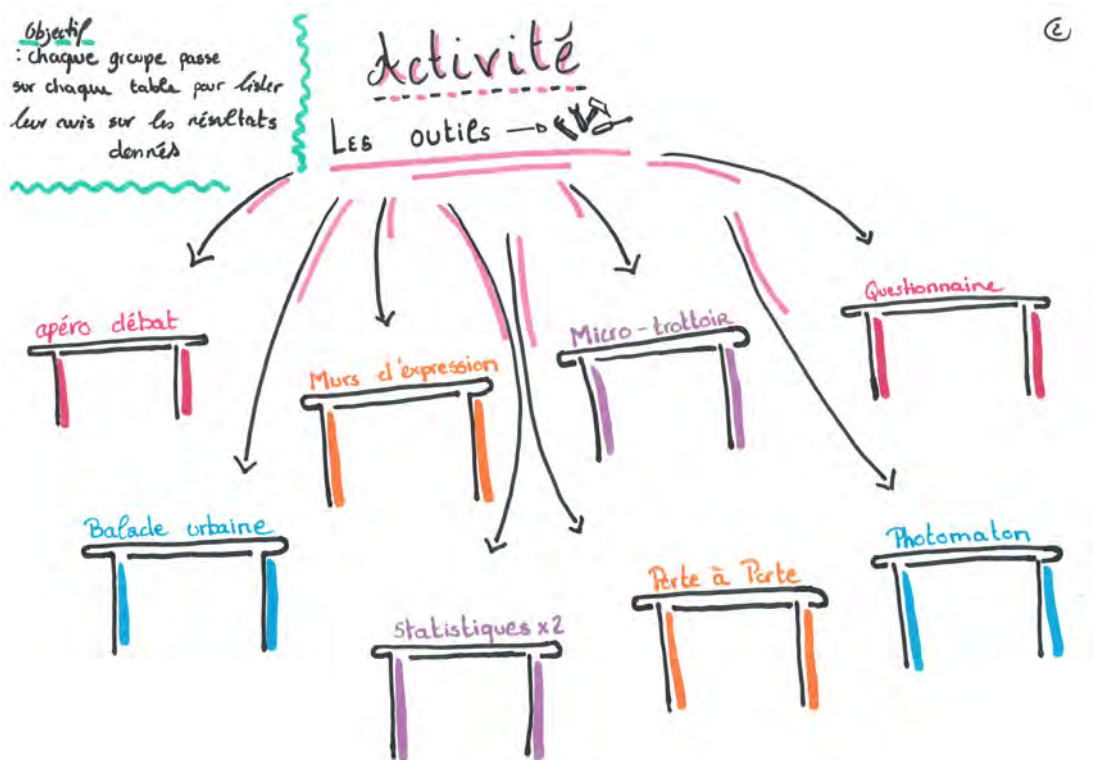 Objectif
: chaque groupe passe
sur chaque table pour lister
leur avis sur les résultats
donnés
Activité
Les outils
apéro débat
Murs d'expression
Micro-trottoir
Questionnaire
Balade urbaine
Statistiques x2
Porte à Porte
Photomaton